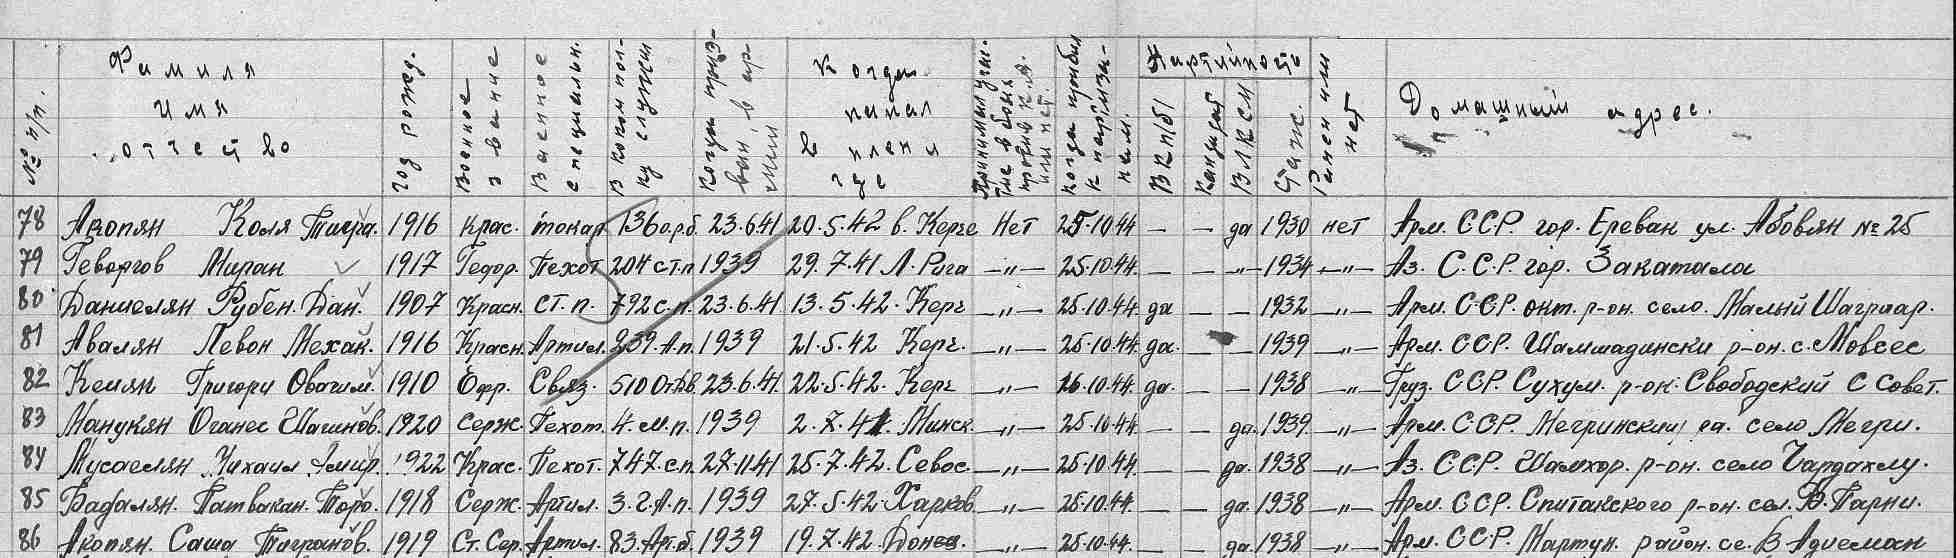 № п/п. Фамилия Имя отчество Год рожд. Военное звание Военное специальн. В каком полку служил Когда призван в армии Когда попал в плен и где Принимал участие в боях против К.А. или нет. Когда прибыл к партизанам. Партийность ВКП/б/ Кандидат ВЛКСМ Стаж. Ранен или нет Домашний адрес.
78 Акопян Коля Тигра. 1916 Крас. токар 136 о.р.б. 23.6.41 20.5.42 в. Керче Нет 25.10.44 — — да 1930 нет Арм. С.С.Р. гор. Ереван ул. Абовян № 25
79 Геворгов Миран 1917 Пехот. 204 с.т.п 1939 29.7.41 Л. Рига —"— 25.10.44. — — —"— 1934 —"— Аз. С.С.Р. гор. Закатала
80 Даниелян Рубен Дан. 1907 Красн. ст. п. 792 с.п. 23.6.41 13.5.42. Керч —"— 25.10.44. да — — 1932 —"— Арм. С.С.Р. окт. р-он. село. Малый Шагриар.
81 Авалян Левон Мехак. 1916 Красн. Артил. 239 А.п. 1939 21.5.42 Керч. —"— 25.10.44. да. — 1939 —"— Арм. С.С.Р. Шамшадински р-он. с. Мовсес
82 Кеиян Григори Овагим. 1910 Офр. Связ. 510 23.6.41. 22.5.42. Керч —"— 26.10.44. да. — — 1938 —"— Груз. С.С.Р. Сухум. р-он. Свободский С Совет.
83 Манукян Оганес Шагинов. 1920 Серж. Пехот. 4. м.п. 1939 2.7.41. Минск —"— 25.10.44. — — да. 1939 —"— Арм. С.С.Р. Мегринский ра. село Мегри.
84 Мусаелян Михаил 1922 Крас. Пехот. 747. с.п. 27.11.41 25.7.42. Севос. —"— 25.10.44. — — да. 1938 —"— Аз. С.С.Р. Шамхор. р-он. село Чардахлу.
85 Бадалян. Патвакан. Торо. 1918 Серж. Артил. 3. Г.А.п. 1939 27.5.42. Харков —"— 25.10.44. — — да 1938 —"— Арм. С.С.Р. Спитакского р-он. сел. В. Парни.
86 Акопян. Саша Тигранов. 1919 Ст. Сер. Артил. 83. Арт.б. 1939 19.7.42. Донец. —"— 25.10.44. — — да. 1938 —"— Арм. С.С.Р. Мартун. район. се. В Адиеман